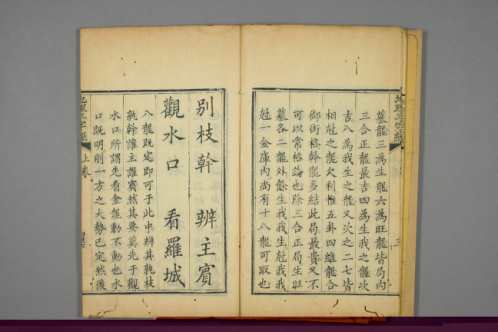 墓龍三為生龍六為旺龍皆局內
三合正龍最吉四為生我之龍次
吉八為我生之龍又次之二七皆
相尅之龍大利惟五卦四維龍合
御街格幹龍多結此局最貴又不
可以常格論也除三合正局生旺
墓各二龍外餘生我我生尅我我
尅一金庫內尚有十八龍可取也
別枝幹 辨主賓
觀水口 看羅城
八龍既定即可于此中辨其孰枝
孰幹誰主誰賓然其要莫先于觀
水口所謂先看金龍動不動也水
口既明則一方之大勢已定然後
上卷